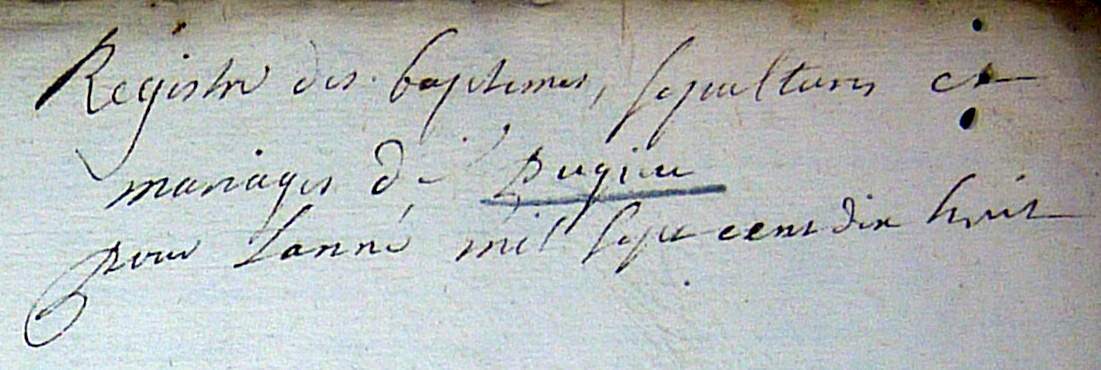 Registre des baptemes, sepultures et
mariages de Pugieu
pour Lanné mil sept cent dix huit